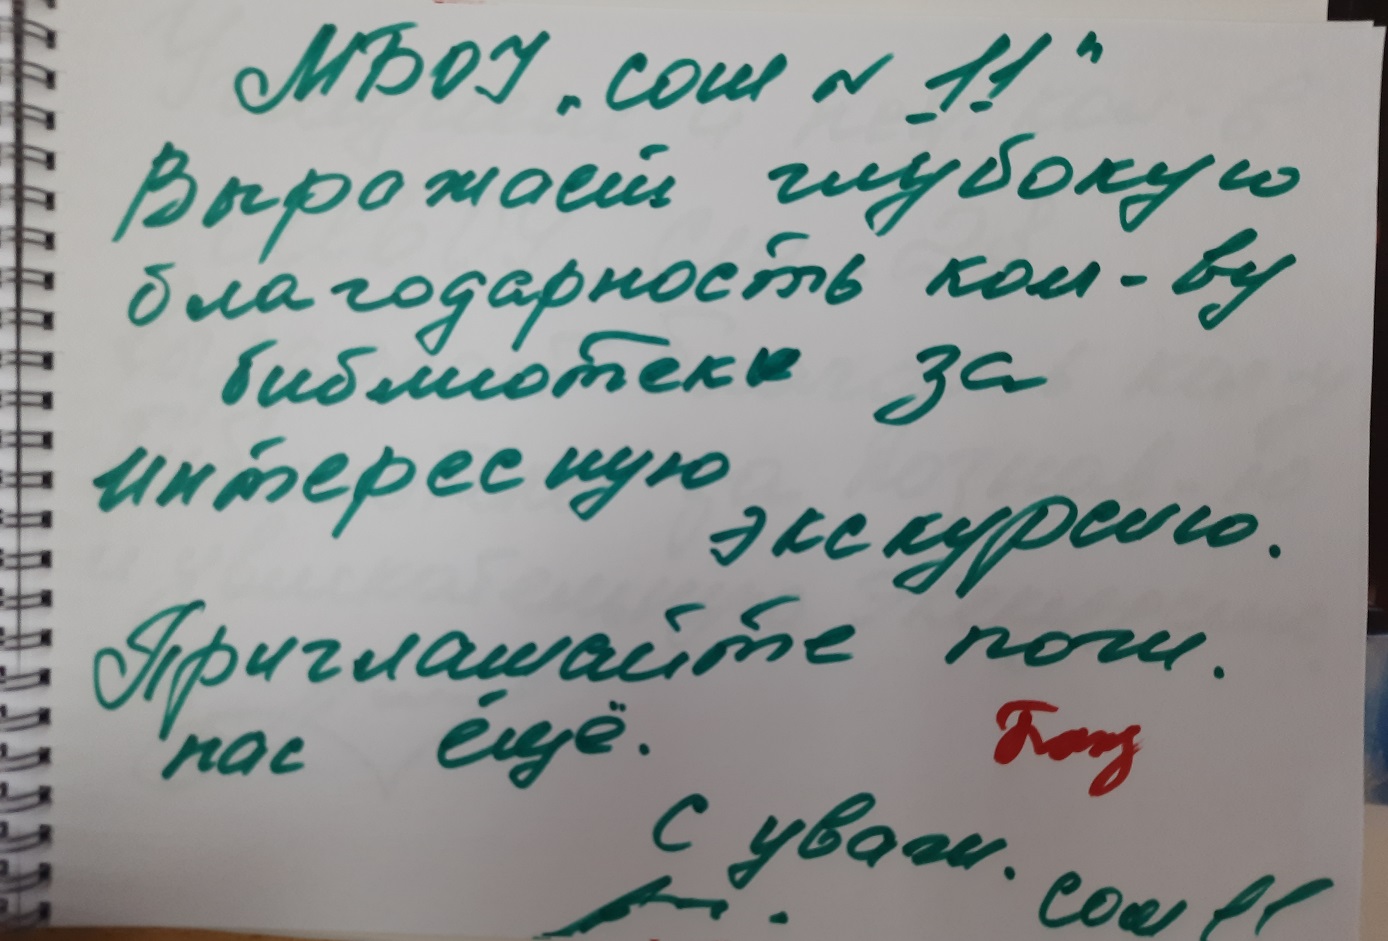 МБОУ „сош № 11"
Выражает глубокую
благодарность кол-ву
библиотеки за
интересную
экскурсию.
Приглашайте пож.
нас ещё.
С уваж.
сош 11